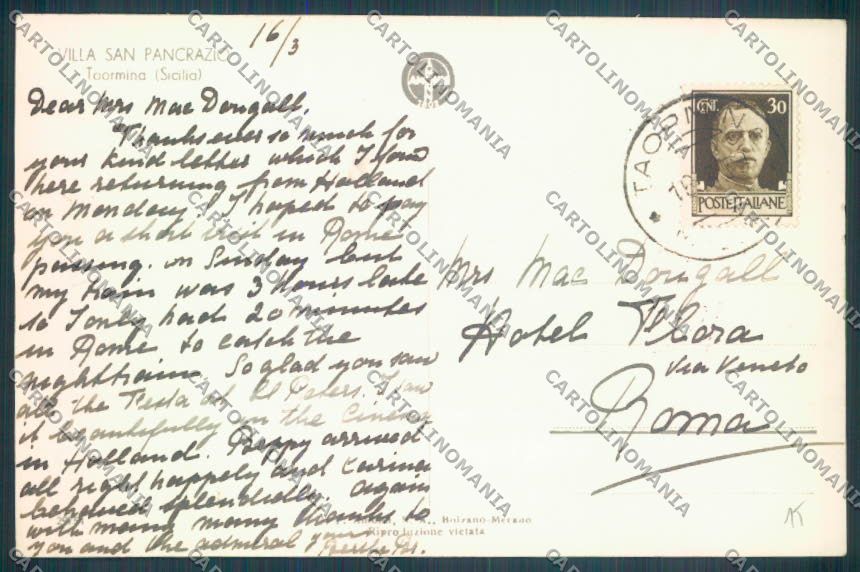 16/3
VILLA SAN PANCRAZIO
Taormina (Sicilia)
Dear Mrs Mac Dougall,
Thanks ever so much for
your kind letter which I found
here returning from Holland
on Monday. I hoped to pay
you a short visit in Rome
passing on Sunday but
my train was 3 hours late
so I only had 20 minutes
in Rome to catch the
nighttrain. So glad you saw
all the Festa at St Peters. I saw
it beautifully in the Cinema
in Holland. Poppy arrived
all right happely and Carina
behaved splendidly. Again
with many many thanks to
you and the admiral your
CENT. 30
POSTE ITALIANE
TAORMINA
Mrs Mac Dougall
Hotel Flora
Via Veneto
Roma
Bolzano-Merano
Riproduzione vietata
CARTOLINOMANIA